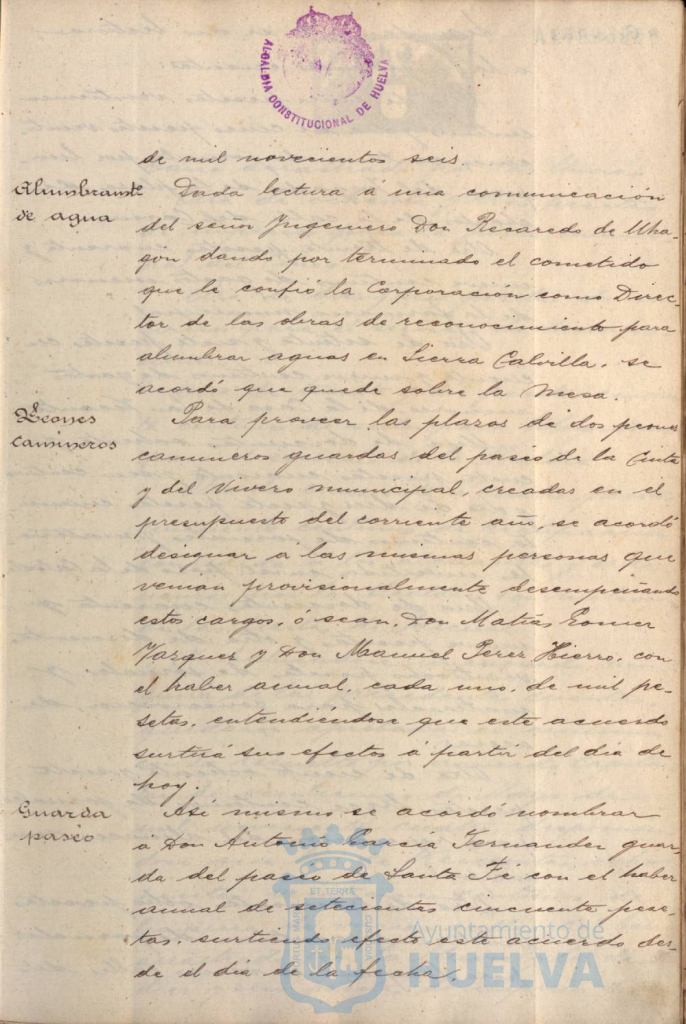 ALCALDIA CONSTITUCIONAL DE HUELVA
de mil novecientos seis.
Alumbramte
de agua
Dada lectura á una comunicación
del señor Ingeniero Don Recaredo de Uha-
gón dando por terminado el cometido
que le confió la Corporación como Direc-
tor de las obras de reconocimiento para
alumbrar aguas en Sierra Calvilla, se
acordó que quede sobre la mesa.
Peones
camineros
Para proveer las plazas de dos peones
camineros guardas del paseo de la Cinta
y del Vivero municipal, creadas en el
presupuesto del corriente año, se acordó
designar á las mismas personas que
venian provisionalmente desempeñando
estos cargos, ó sean, Don Matías Romer
Vazquez y Don Manuel Perez Hierro, con
el haber anual, cada uno, de mil pe-
setas, entendiéndose que este acuerdo
surtirá sus efectos á partir del dia de
hoy.
Guarda
paseo
Asi mismo se acordó nombrar
á Don Antonio Garcia Fernandez guar-
da del paseo de Santa Fé con el haber
anual de setecientas cincuenta pese-
tas, surtiendo efecto este acuerdo des-
de el dia de la fecha.
Ayuntamiento de
HUELVA